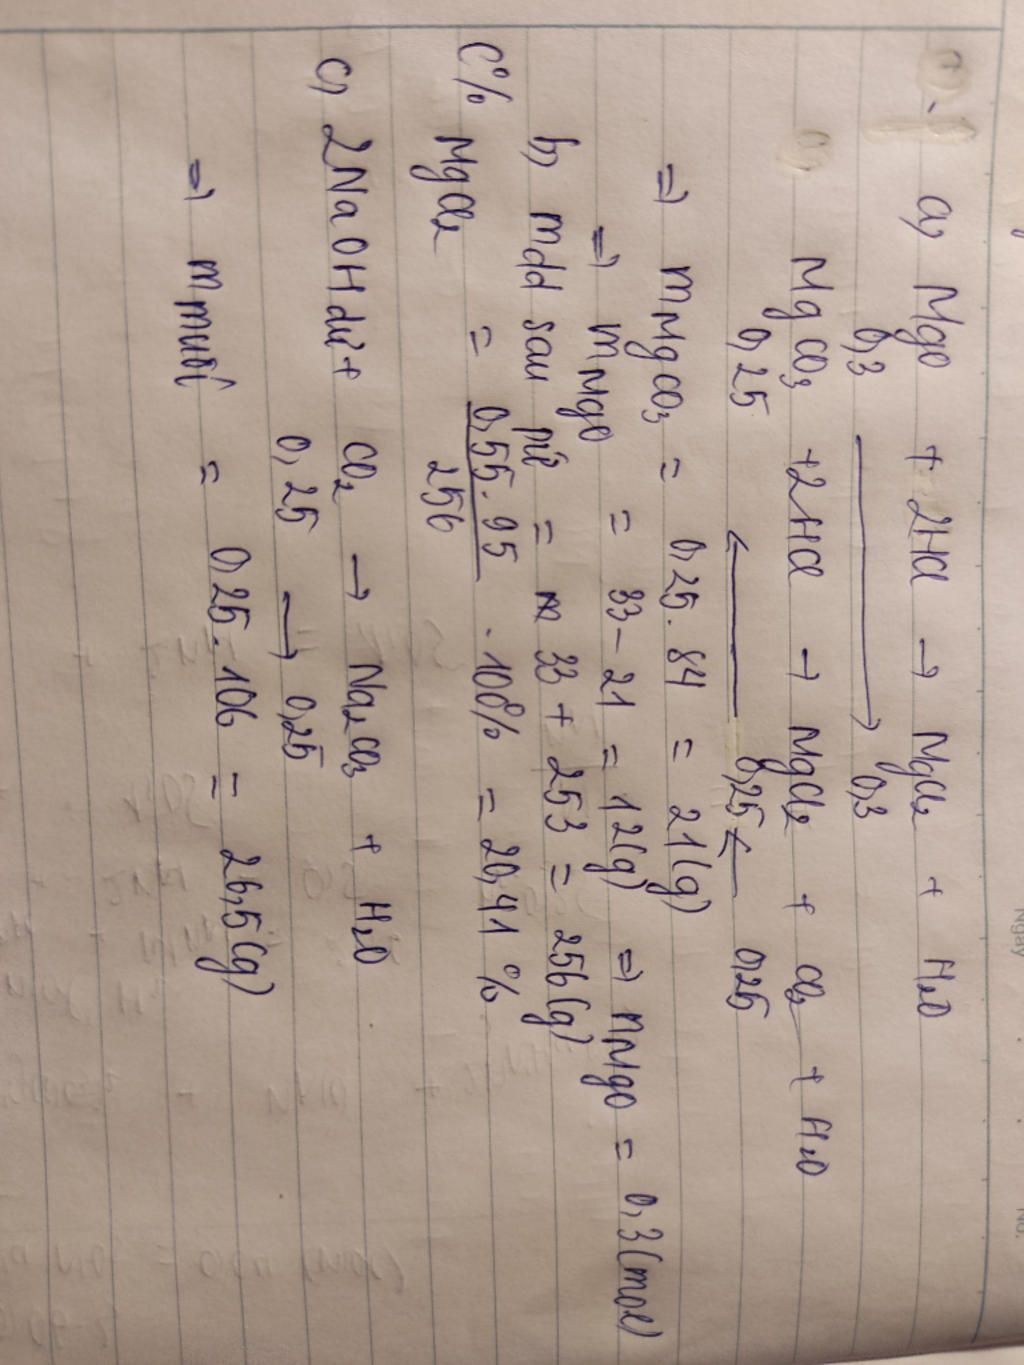 a, MgO + 2HCl → MgCl₂ + H₂O
0,3 → 0,3
MgCO₃ + 2HCl → MgCl₂ + CO₂ + H₂O
0,25 ← 0,25 ← 0,25
=> mMgCO₃ = 0,25 . 84 = 21(g)
=> mMgO = 33 - 21 = 12(g) => nMgO = 0,3 (mol)
b, mdd sau pứ = 33 + 253 = 256(g)
C% MgCl₂ = 0,55 . 95 / 256 . 100% = 20,41 %
c, 2NaOH dư + CO₂ → Na₂CO₃ + H₂O
0,25 → 0,25
=> m muối = 0,25 . 106 = 26,5(g)
Ngày
No.